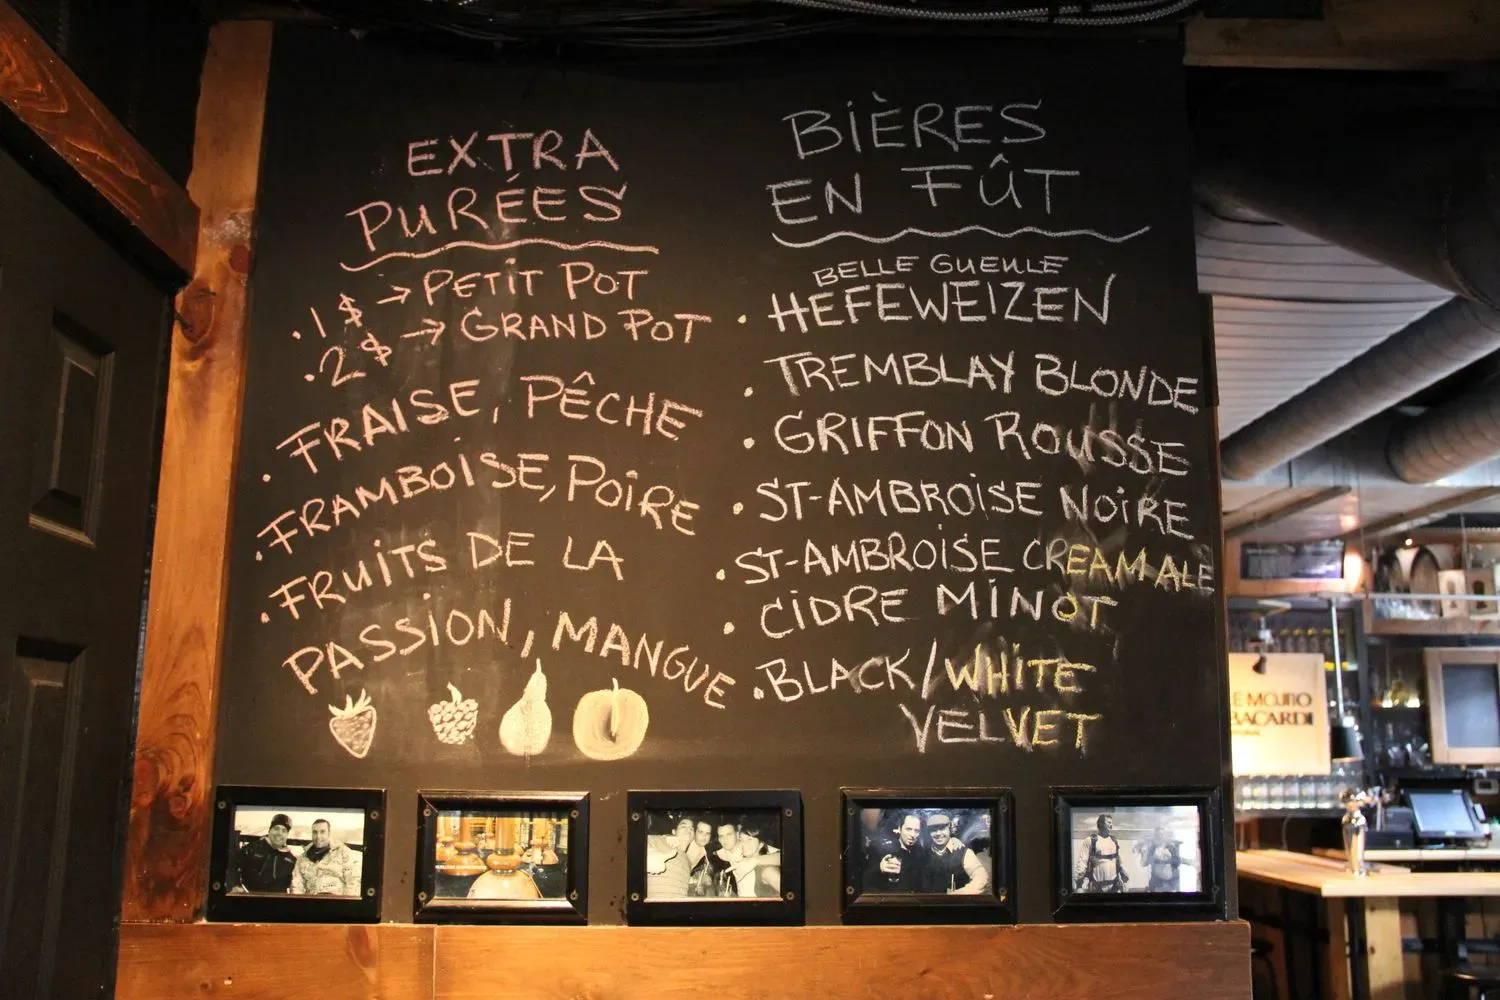 EXTRA
PURÉES
.1$ → PETIT POT
.2$ → GRAND POT
. FRAISE, PÊCHE
. FRAMBOISE, POIRE
. FRUITS DE LA
PASSION, MANGUE
BIÈRES
EN FÛT
BELLE GUEULE
. HEFEWEIZEN
. TREMBLAY BLONDE
. GRIFFON ROUSSE
. ST-AMBROISE NOIRE
. ST-AMBROISE CREAM ALE
. CIDRE MINOT
. BLACK/WHITE
VELVET
E MOJITO
BACARDI